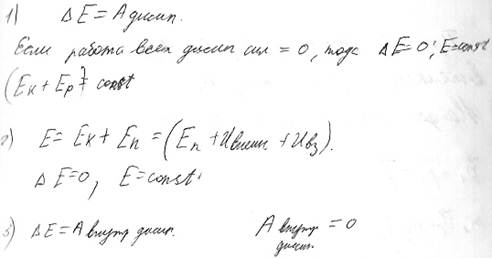 1) ΔE = A дисип.
Если работа всех дисип сил = 0, тода ΔE=0; E=const
(Eк + Ep) = const
2) E = Eк + Eп = (Eп + Uвнеш + Uвз).
ΔE=0, E=const.
3) ΔE = A внутр дисип. A внутр дисип. = 0